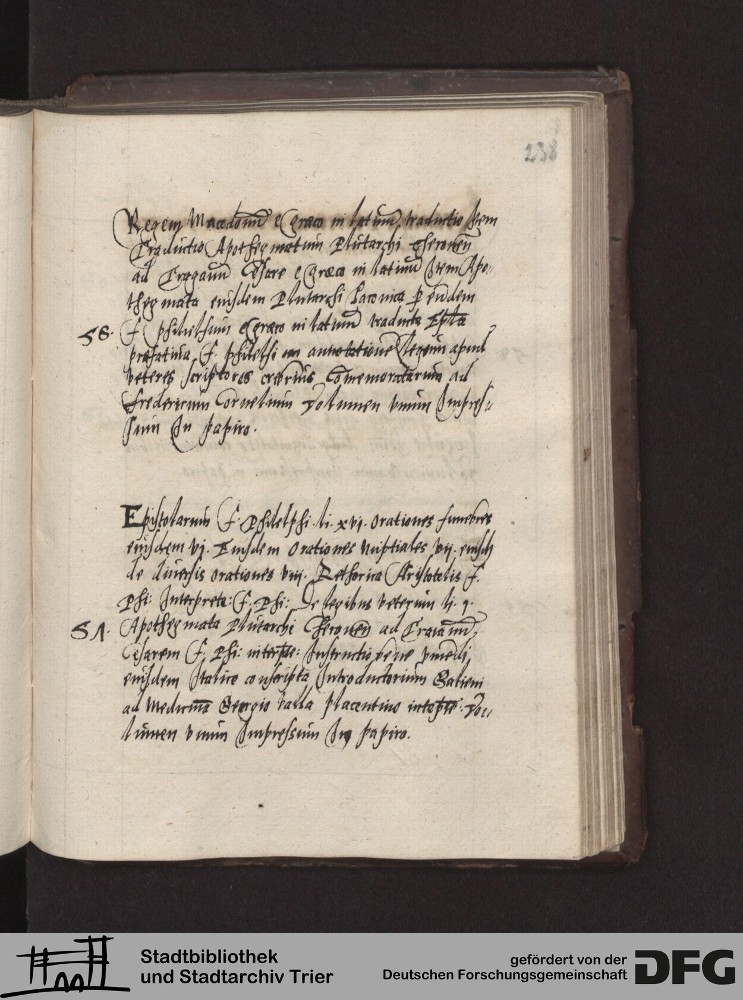 238
Regem Macedonū e greco in latinū, traductio Jtem
Traductio Apothegmatum Plutarchi Cheronen̄
ad Traganū Cesarē e greco in latinū Jtem Apo-
thegmata eiusdem Plutarchi Laconica p̱ eundem
58. f. philelfum e greco in latinū traducta Ep̄la
præfatiua f. philelfi in annotatione Regum apud
veteres scriptores crebrius Comemoratarum ad
fredericum Cornelium volumen vnum Impres-
sum In papiro.
Epistolarum f. Philelphi. li. xvj. orationes funebres
eiusdem vj. Eiusdem orationes nuptiales vij. eiusdē
de diuersis orationes viij. Rethorica Aristotelis f.
Phi: Interprete: f. Phi: De legibus veterum li. j.
59. Apothegmata Plutarchi Cheronen̄ ad Traianū,
Cesarem f. Phi: interpte: Instructio bene viuendi,
eiusdem Italice conscripta, Introductorium Galieni
ad Medicinā Georgio Valla placentino interpte: Vo-
lumen vnum Impressum In papiro.
Stadtbibliothek
und Stadtarchiv Trier
gefördert von der
Deutschen Forschungsgemeinschaft
DFG